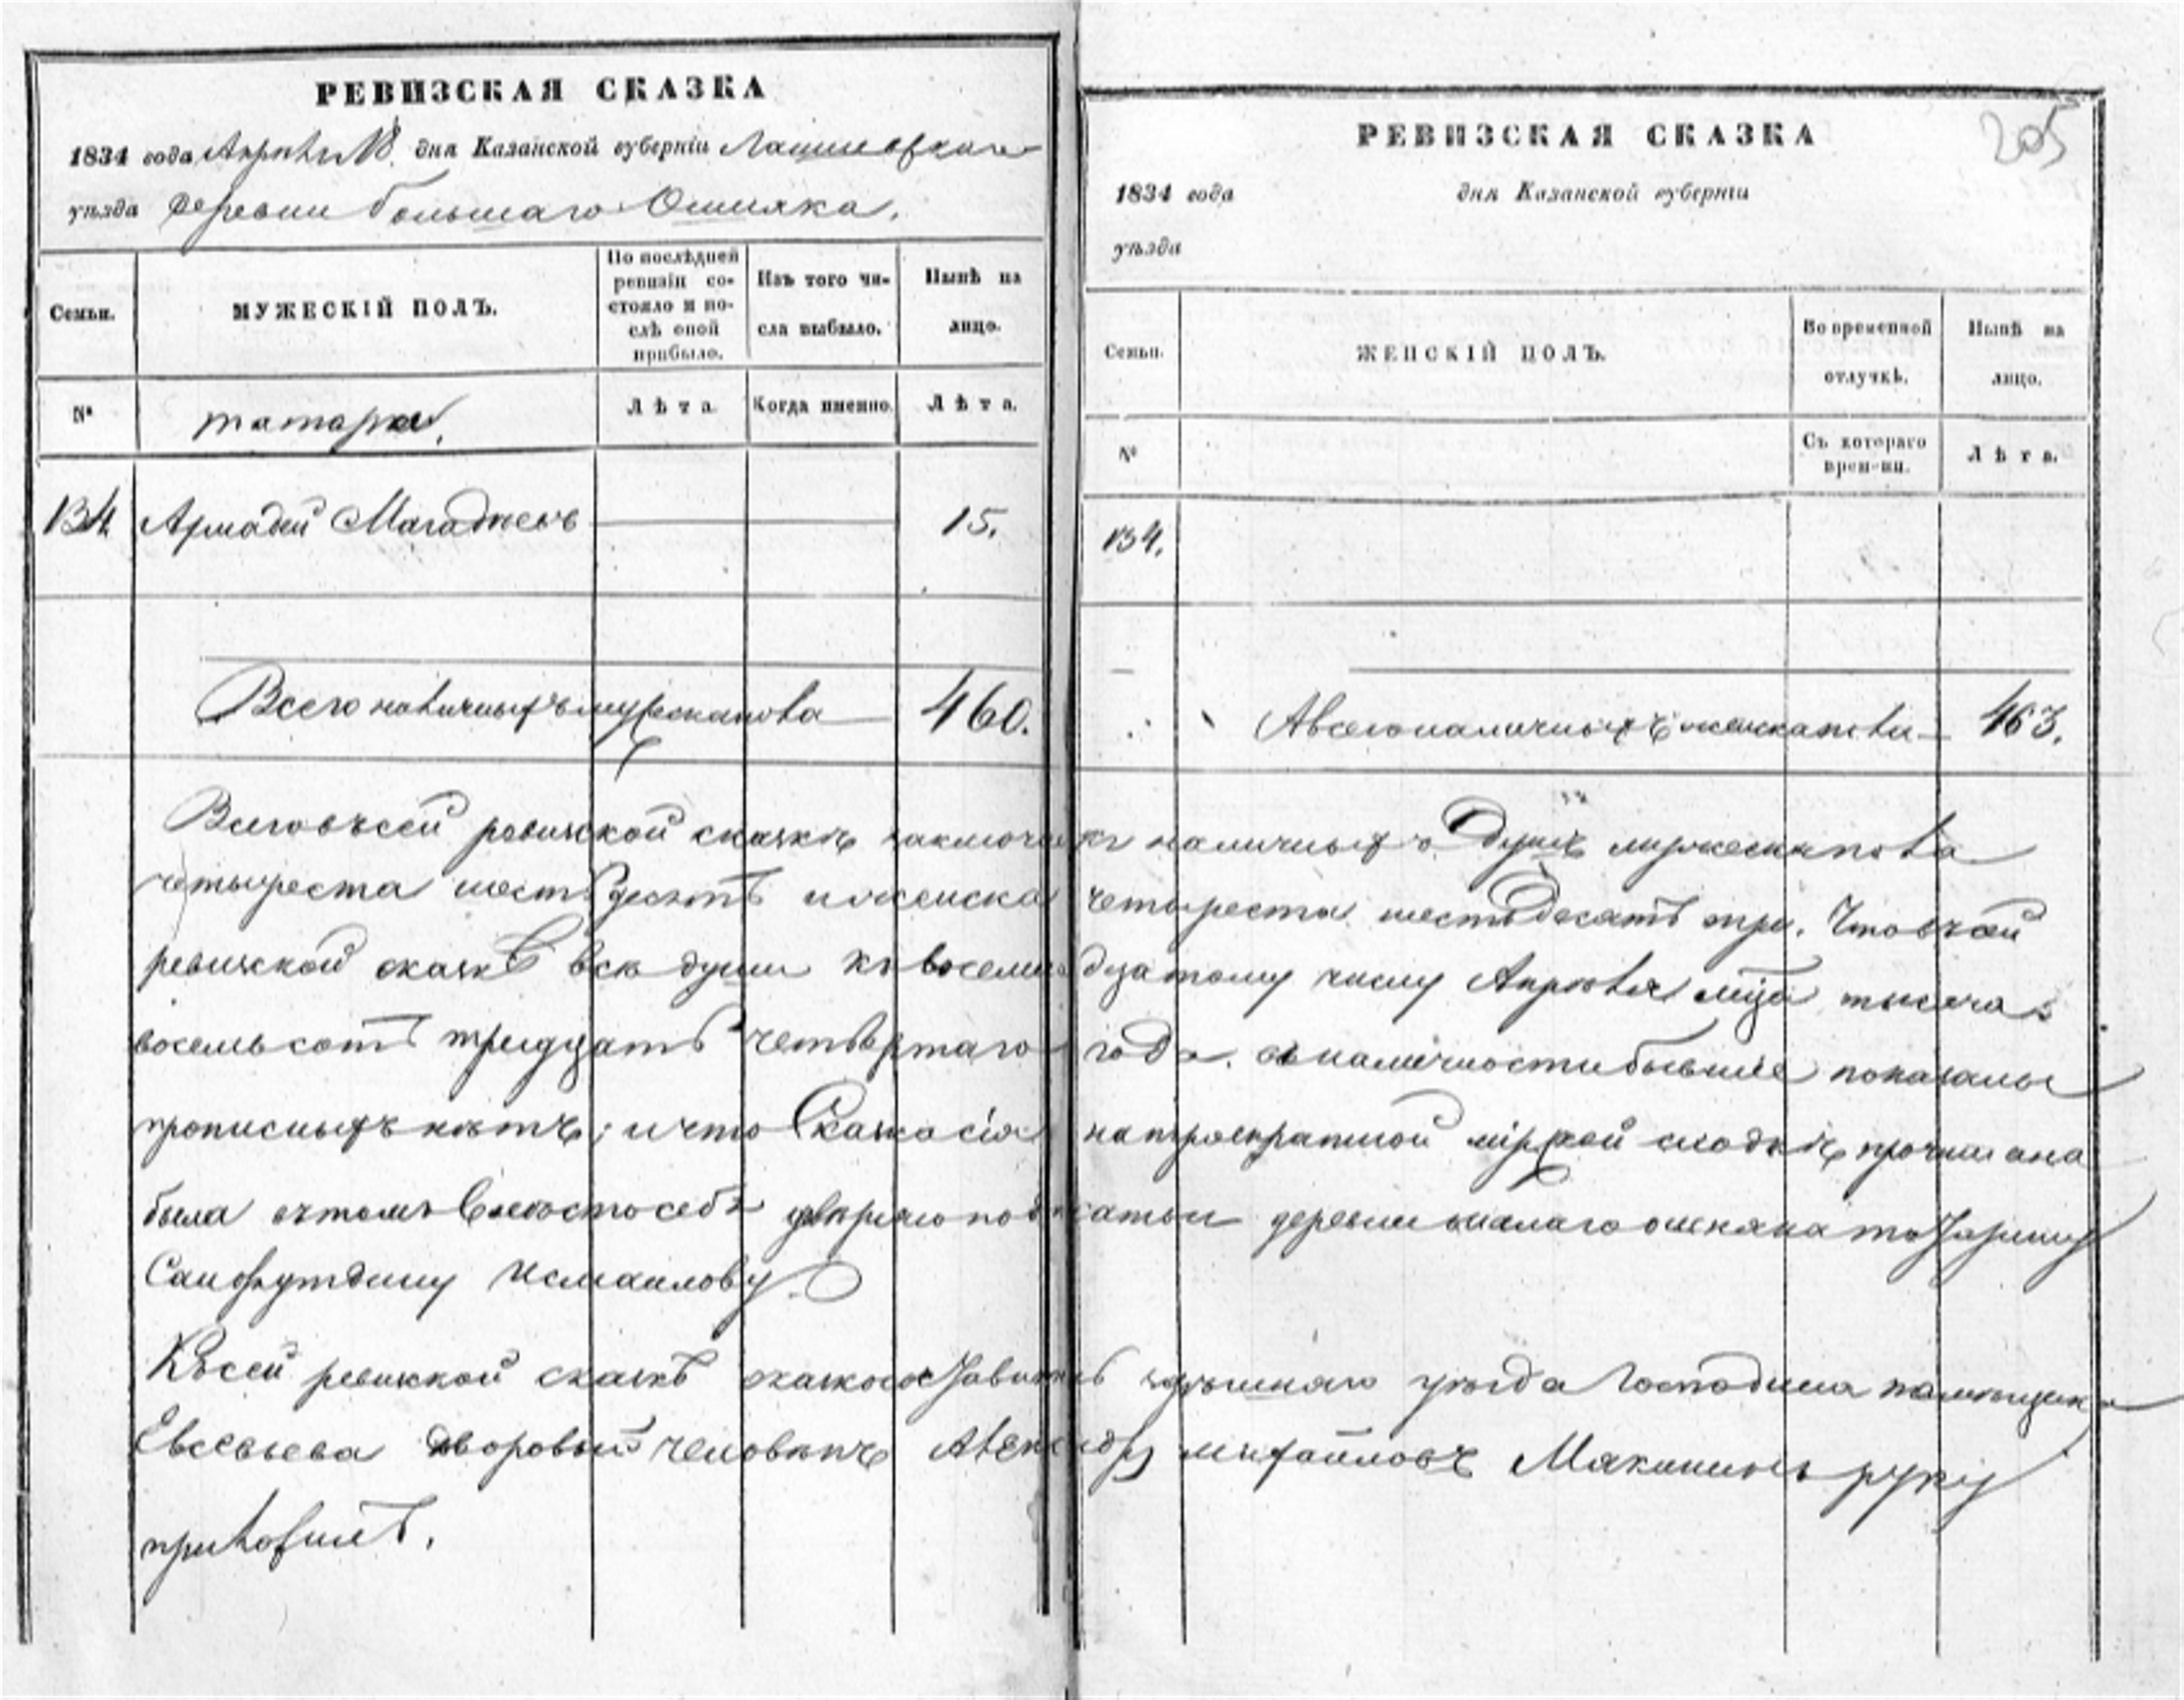 РЕВИЗСКАЯ СКАЗКА
1834 года Апреля 18. дня Казанской губерніи Лаишевскаго
уѣзда деревни большаго Ошняка.
Семьи.
МУЖЕСКІЙ ПОЛЪ.
По послѣдней ревизіи со-
стояло и по-
слѣ оной
прибыло.
Изъ того чи-
сла выбыло.
Нынѣ на
лицо.
№
татара.
Лѣта.
Когда именно.
Лѣта.
134
15.
Всего наличныхъ мужеска пола 460.
205
РЕВИЗСКАЯ СКАЗКА
1834 года дня Казанской губерніи
уѣзда
Семьи.
ЖЕНСКІЙ ПОЛЪ.
Во временной
отлучкѣ.
Нынѣ на
лицо.
№
Съ котораго
времени.
Лѣта.
134.
А всего наличныхъ женска пола 463.
Всего въ сей ревиской скаскѣ заключается наличныхъ душъ мужеска пола
четыреста шестьдесятъ и женска четыреста шестьдесятъ три. Что в сей
ревиской скаскѣ все души къ восемнадцатому числу Апреля мца тысяча
восемьсотъ тридцать четвертаго года. в наличности бывшие показаны
прописныхъ нѣтъ; и что Скаска сія на троекратной мірской сходкѣ прочитана
была в томъ вместо себя доверяю подписатся деревни малаго ошняка татарину
Сайфутдину Исмаилову.
Къ сей ревиской скаскѣ уѣзда Господина помѣщика
Евсевьева дворовый человѣкъ Александр михайловъ Макининъ руку
приложилъ.